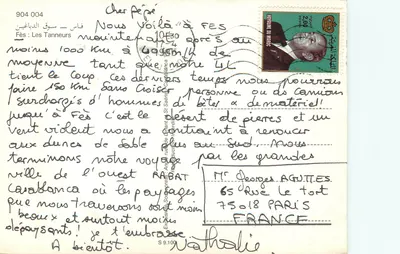 904 004
فاس - سوق الدباغين
Fès : Les Tanneurs
Cher pépé
Nous voilà à FES
maintenant après au
moins 1000 Km à 40 Km/h de
moyenne tant que notre 4L
tient le coup Ces derniers temps nous pourrons
faire 150 Km sans croiser personne ou des camions
surchargés d'hommes de bêtes et de matériel
jusqu'à Fès c'est le désert de pierres et un
vent violent nous a contraint à renoncer
aux dunes de sable plus au Sud. Nous
terminons notre voyage par les grandes
ville de l'ouest RABAT
Casablanca où les paysages
que nous traversons sont moins
beaux et surtout moins
dépaysants! je t'embrasse
A bientôt. Nathalie
Mr Georges AGUTTES
65 Rue Le Tort
75018 PARIS
FRANCE